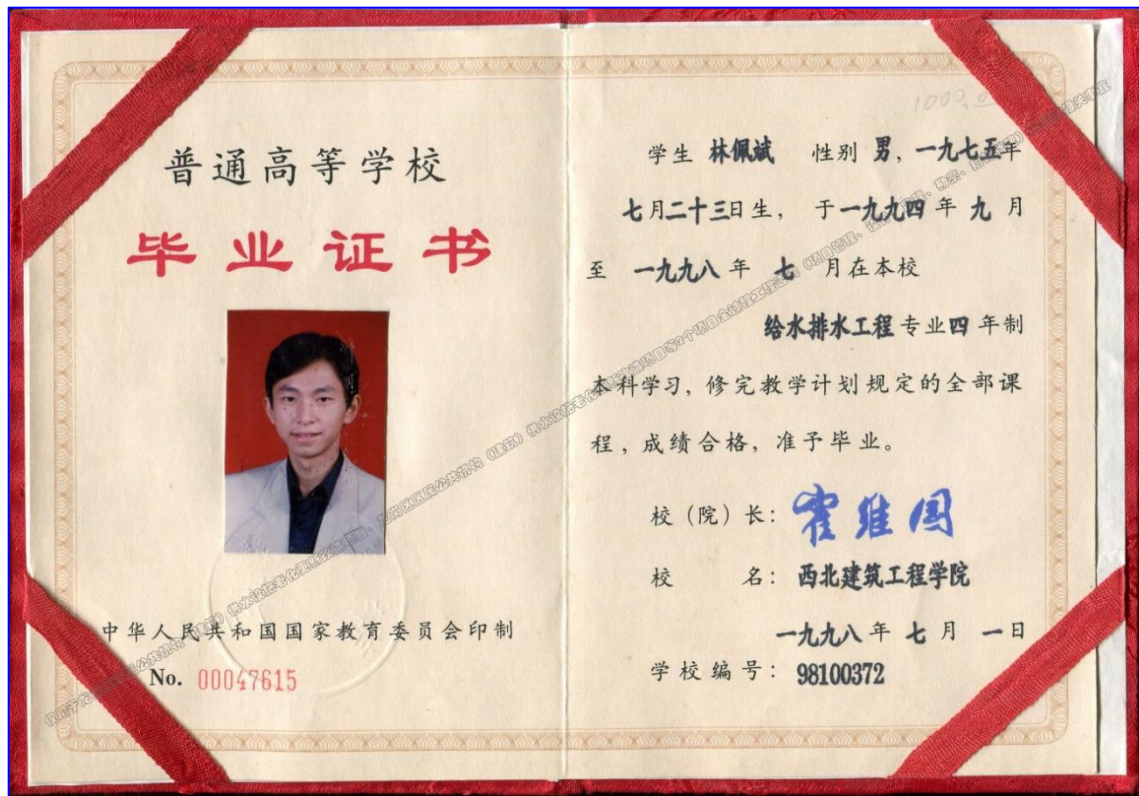 普通高等学校
毕业证书
中华人民共和国国家教育委员会印制
No. 00047615
学生 林佩斌 性别 男，一九七五年
七月二十三日生， 于一九九四年 九 月
至 一九九八年 七 月在本校
给水排水工程专业四年制
本科学习，修完教学计划规定的全部课
程，成绩合格，准予毕业。
校（院）长： 霍维国
校 名： 西北建筑工程学院
一九九八年 七 月 一日
学校编号： 98100372